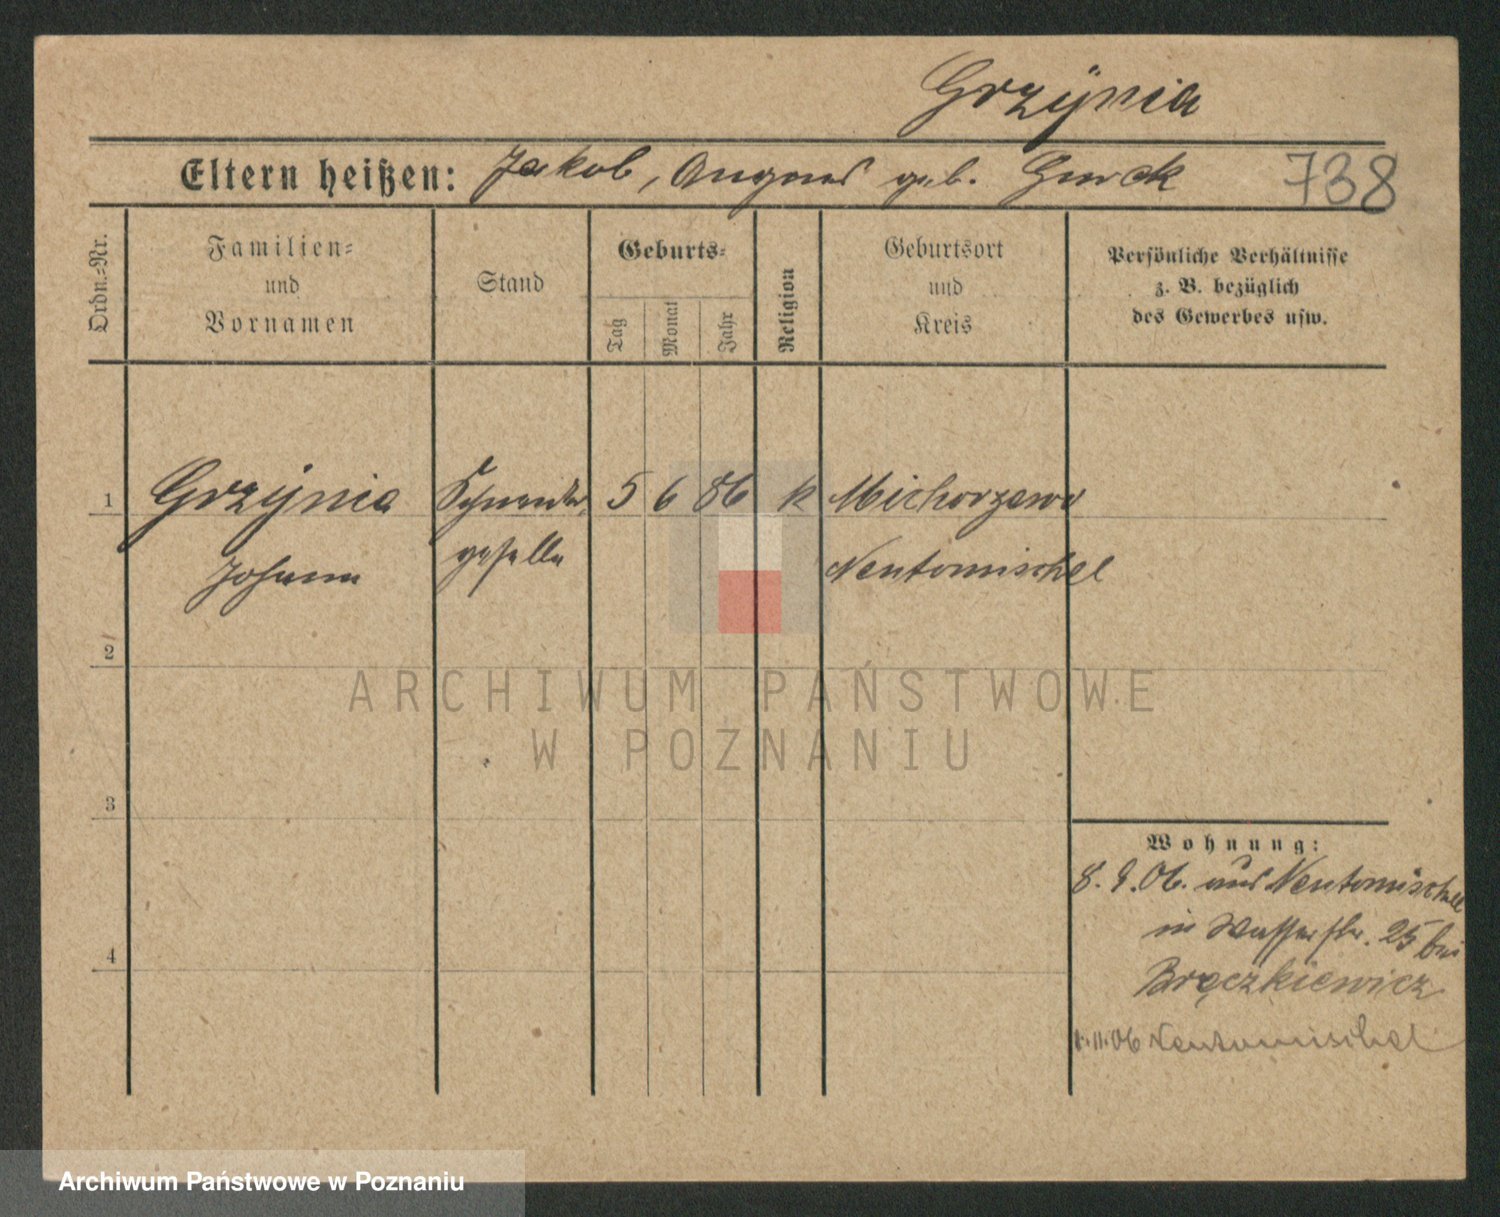 Grzÿnia
Eltern heißen: Jakob, geb. 738
Ordn.-Nr.
Familien-
und
Vornamen
Stand
Geburts-
Tag
Monat
Jahr
Religion
Geburtsort
und
Kreis
Persönliche Verhältnisse
z. B. bezüglich
des Gewerbes usw.
1 Grzÿnia Schneider- 5 6 86 k Michorzewo
Johann geselle Neutomischel
2
ARCHIWUM PAŃSTWOWE
W POZNANIU
3
Wohnung:
8. 9. 06. aus Neutomischel
in Wasserstr. 25 bei
4
Bręczkiewicz
1.11.06 Neutomischel
Archiwum Państwowe w Poznaniu